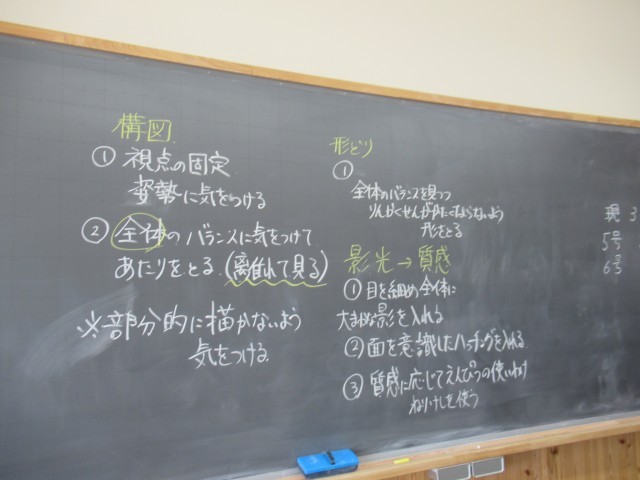 構図
① 視点の固定
姿勢に気をつける
② 全体のバランスに気をつけて
あたりをとる。(離れて見る)
※部分的に描かないよう
気をつける。
形どり
①
全体のバランスを見つつ
りんかくせんがかたくならないよう
形をとる
影光→質感
① 目を細め全体に
大まかな影を入れる
② 面を意識したハッチングを入れる
③ 質感に応じてえんぴつの使いわけ
ねりけしを使う
現 3
5号
6号